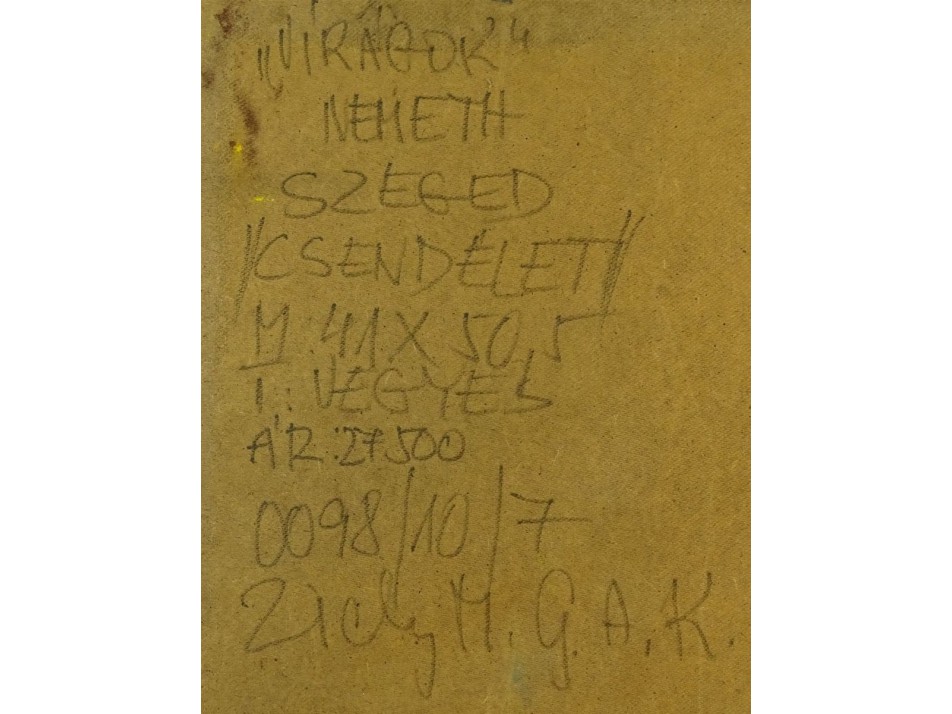 „VIRÁGOK"
NÉMETH
SZEGED
/CSENDÉLET/
M 41X50,5
T: VEGYES
ÁR: 27500
0098/10/7
Zichy M. G. A. K.